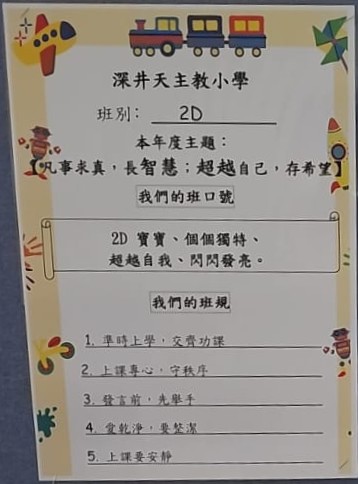 深井天主教小學
班別： 2D
本年度主題：
【凡事求真，長智慧；超越自己，存希望】
我們的班口號
2D 寶寶、個個獨特、
超越自我、閃閃發亮。
我們的班規
1. 準時上學，交齊功課
2. 上課專心，守秩序
3. 發言前，先舉手
4. 愛乾淨，要整潔
5. 上課要安靜